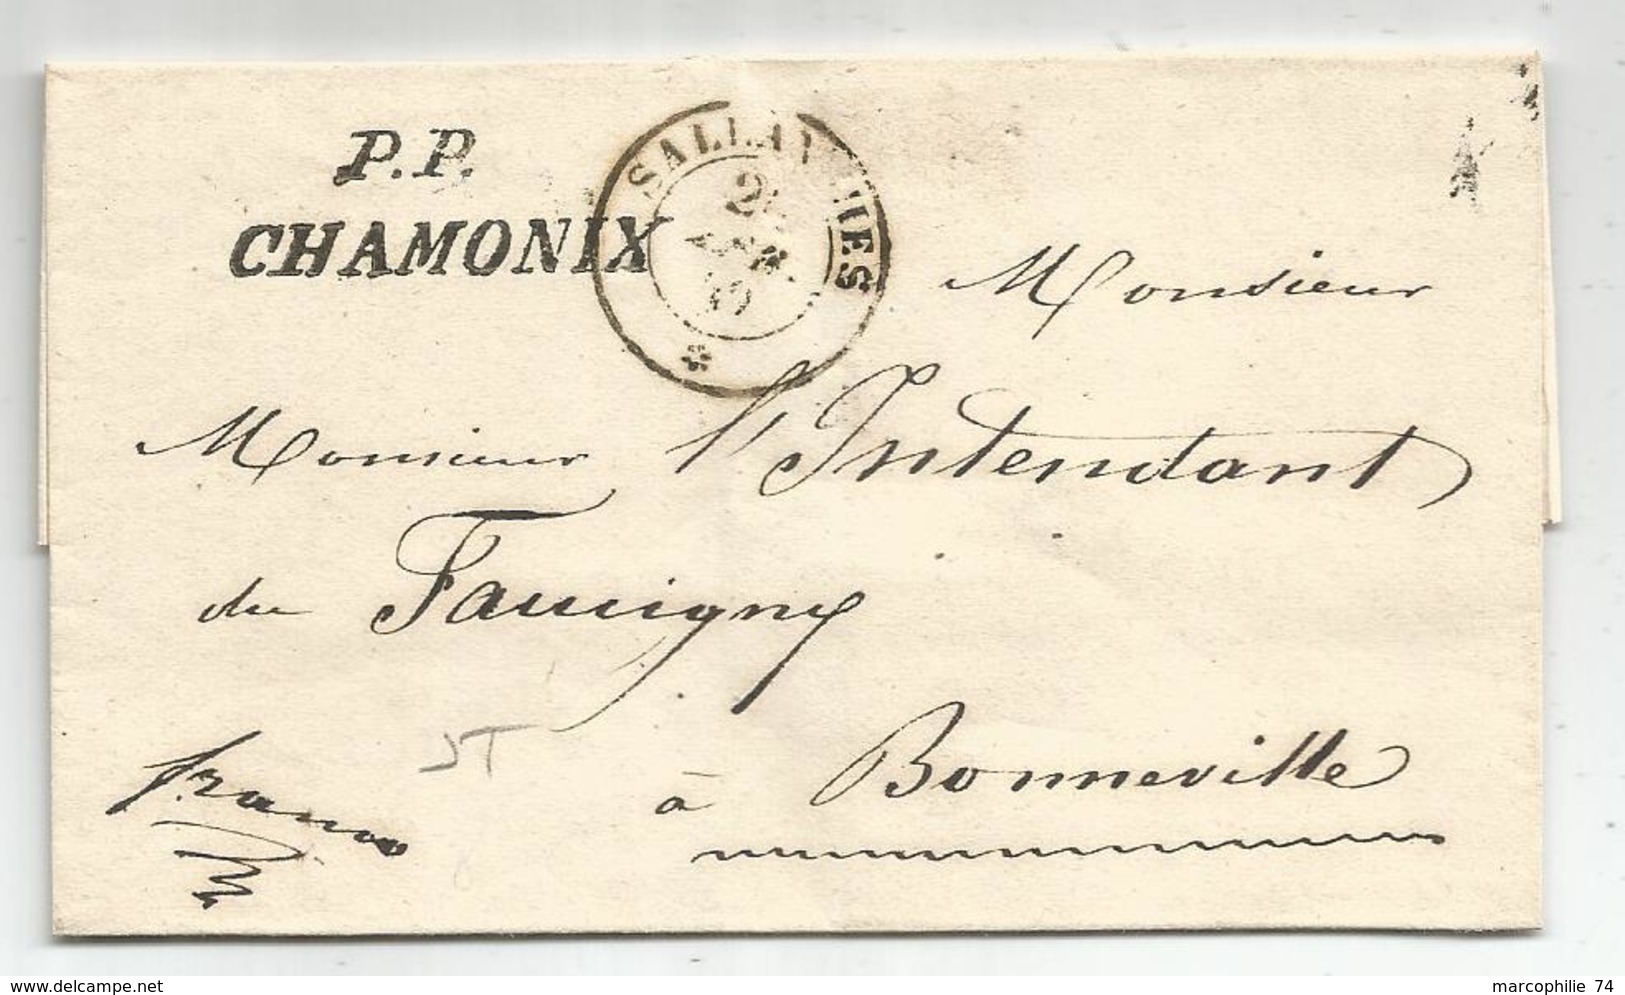 P.P.
CHAMONIX
SALLANCHES
Monsieur
Monsieur l'Intendant
du Faucigny
à Bonneville
franco
www.delcampe.net
marcophilie 74